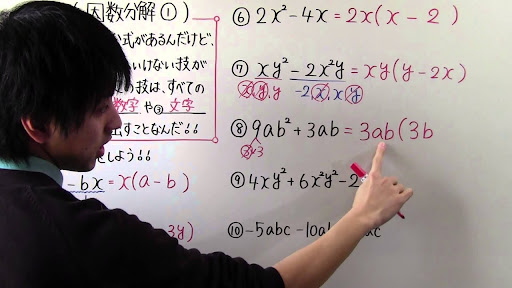 (因数分解①)
公式があるんだけど、
いけない技が
の技は、すべての
数字や③文字
出すことなんだ!!
をしよう!!
-bx = x(a-b)
3y)
⑥ 2x²-4x = 2x(x-2)
⑦ xy²-2x²y = xy(y-2x)
x, y, y -2, x, x, y
⑧ 9ab²+3ab = 3ab(3b
3×3
⑨ 4xy²+6x²y²-2
⑩ -5abc-10ab